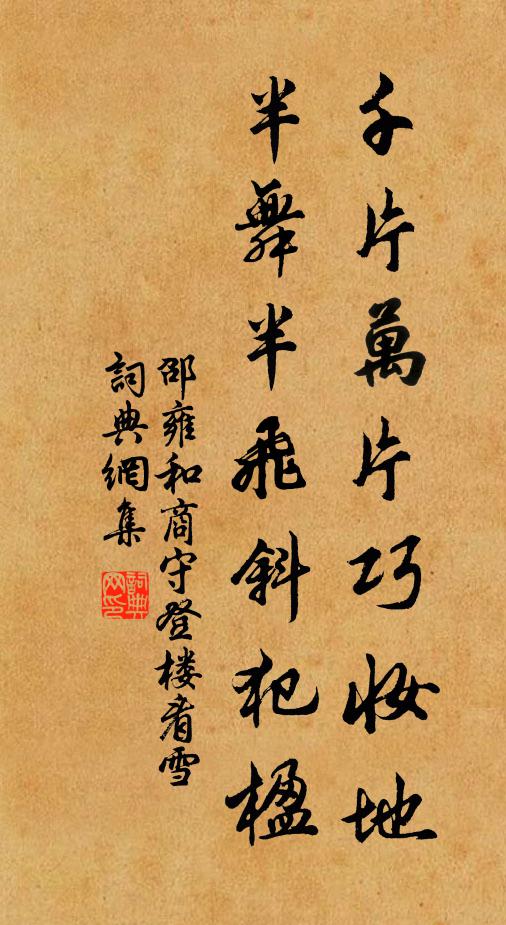 千片萬片巧妝地
半舞半飛斜犯楹
邵雍和商守登楼看雪
詞典網集
詞典网印